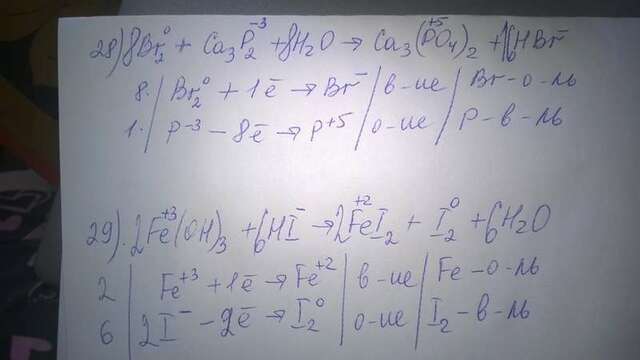 28) 8Br₂⁰ + Ca₃P₂⁻³ + 8H₂O → Ca₃(P⁺⁵O₄)₂ + 16HBr⁻
8. | Br₂⁰ + 1ē → Br⁻ | в-ие | Br-о-ль
1. | P⁻³ - 8ē → P⁺⁵ | о-ие | P-в-ль
29). 2Fe⁺³(OH)₃ + 6HI⁻ → 2Fe⁺²I₂ + I₂⁰ + 6H₂O
2 | Fe⁺³ + 1ē → Fe⁺² | в-ие | Fe-о-ль
6 | 2I⁻ - 2ē → I₂⁰ | о-ие | I₂-в-ль